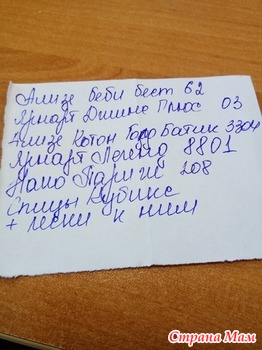 Ализе Беби бест 62
Ярнарт Джинс Плюс 03
Ализе Котон Голд Батик 3304
Ярнарт Легенд 8801
Нако Париж 208
Спицы Кубикс
+ лески к ним
Страна Мам